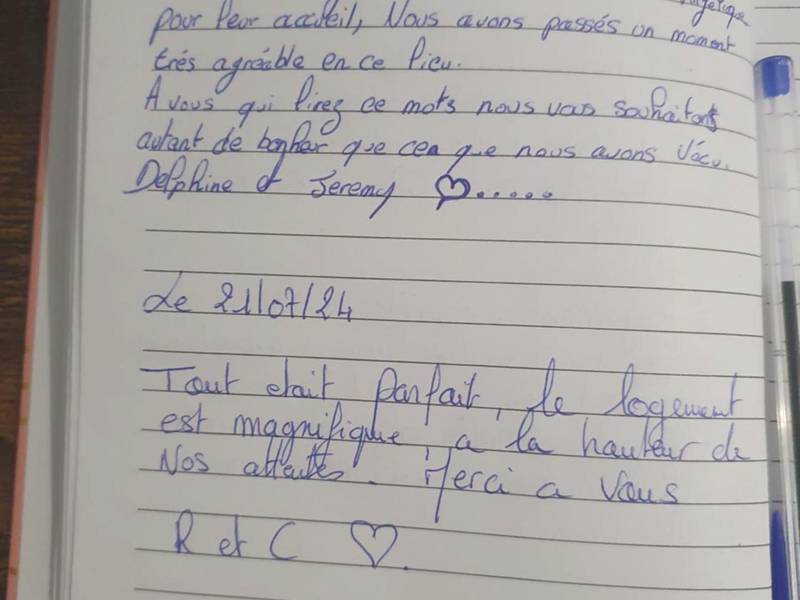 pour leur accueil, Nous avons passés un moment
très agréable en ce lieu.
A vous qui lirez ce mots nous vous souhaitons
autant de bonheur que ceu que nous avons vécu.
Delphine et Jeremy ♡.....
Le 21/07/24
Tout etait parfait, le logement
est magnifique, a la hauteur de
Nos attentes. Merci a vous
R et C ♡.